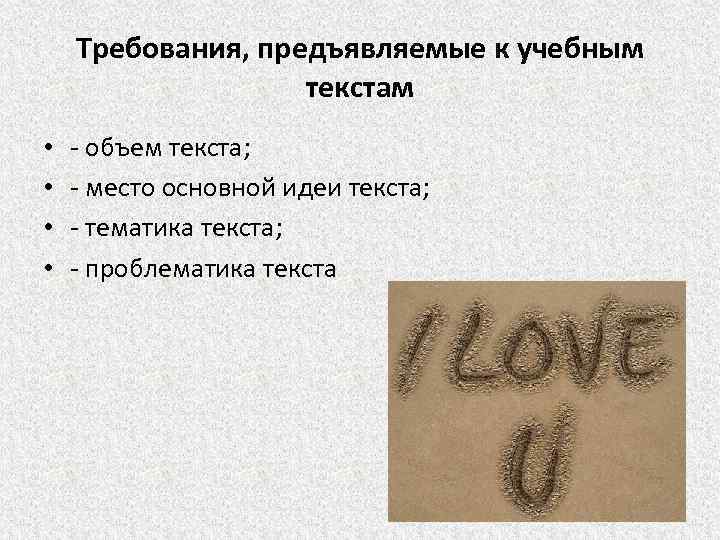 Требования, предъявляемые к учебным
текстам
• - объем текста;
• - место основной идеи текста;
• - тематика текста;
• - проблематика текста
I LOVE
U